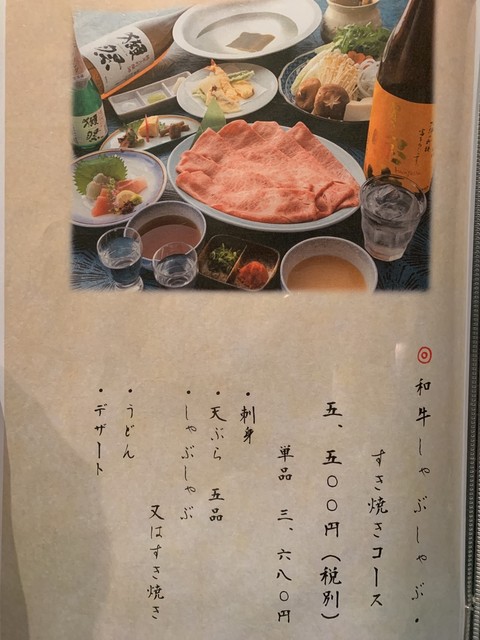 獺祭
獺祭
◎和牛しゃぶしゃぶ・
すき焼きコース
五、五〇〇円（税別）
単品 三、六八〇円
・刺身
・天ぷら 五品
・しゃぶしゃぶ
又はすき焼き
・うどん
・デザート